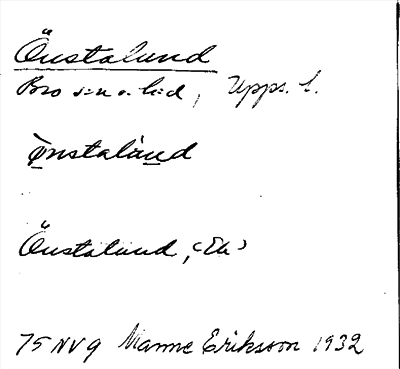 Önstalund
Bro sn o. hd, Upps. l.
Önstalùnd
Önstalund, (Ek)
75 NV g Manne Eriksson 1932